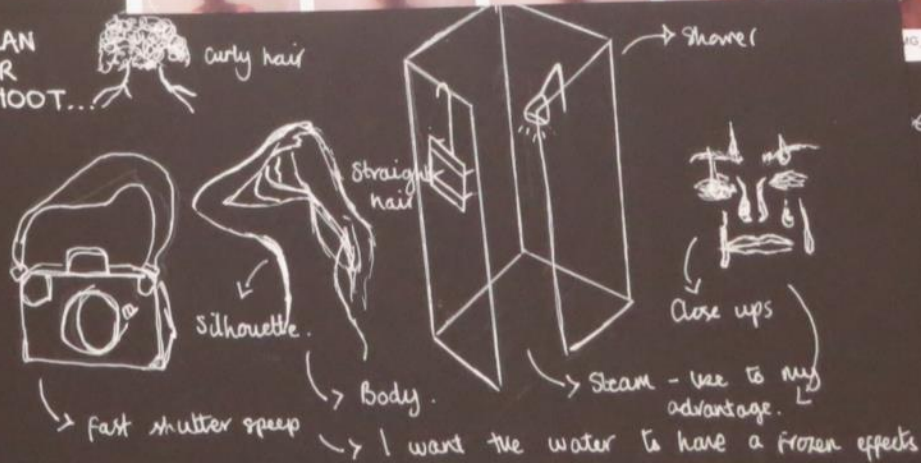 AN
R
HOOT...
curly hair
Shower
Straight
hair
Silhouette.
Close ups
Body.
Steam - use to my
advantage.
fast shutter speep
I want the water to have a frozen effects